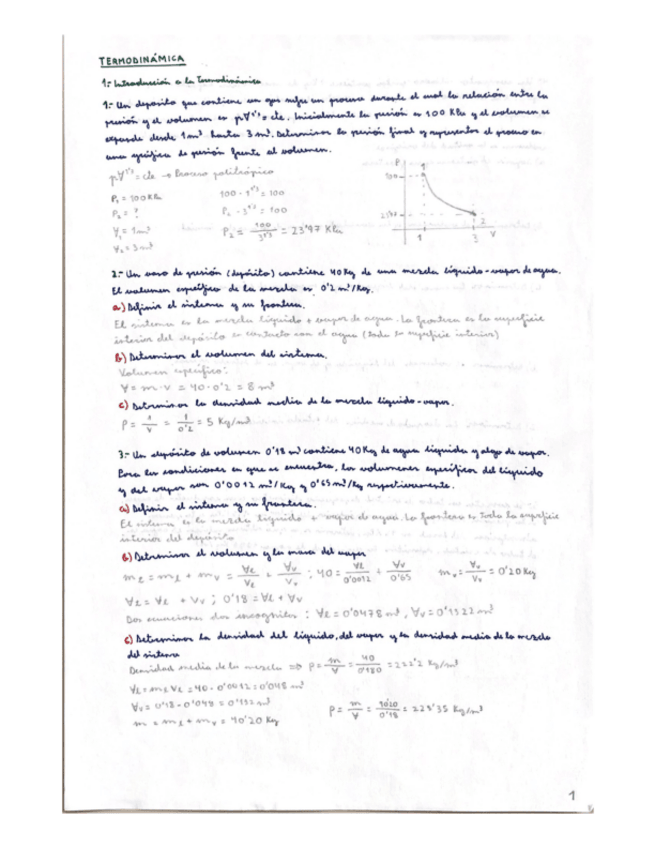 TERMODINÁMICA
1.- Introducción a la Termodinámica
1.- Un deposito que contiene un gas sufre un proceso durante el cual la relación entre la
presión y el volumen es p∀¹'³ = cte. Inicialmente la presión es 100 KPa y el volumen se
expande desde 1 m³ hasta 3 m³. Determinar la presión final y representar el proceso en
una gráfica de presión frente al volumen.
p∀¹'³ = cte → Proceso politrópico
P₁ = 100 KPa
100 · 1¹'³ = 100
P₂ = ?
P₂ · 3¹'³ = 100
∀₁ = 1 m³
P₂ = 100 / 3¹'³ = 23'97 KPa
∀₂ = 3 m³
P
100
1
2
1
3
V
2.- Un vaso de presión (depósito) contiene 40 Kg de una mezcla líquido-vapor de agua.
El volumen específico de la mezcla es 0'2 m³/Kg.
a) Definir el sistema y su frontera.
El sistema es la mezcla líquido + vapor de agua. La frontera es la superficie
interior del depósito en contacto con el agua (toda la superficie interior)
b) Determinar el volumen del sistema.
Volumen específico:
∀ = m · v = 40 · 0'2 = 8 m³
c) Determinar la densidad media de la mezcla líquido-vapor.
ρ = 1/v = 1/0'2 = 5 Kg/m³
3.- Un depósito de volumen 0'18 m³ contiene 40 Kg de agua líquida y algo de vapor.
Para las condiciones en que se encuentra, los volumenes específicos del líquido
y del vapor son 0'0012 m³/Kg y 0'65 m³/Kg respectivamente.
a) Definir el sistema y su frontera.
El sistema es la mezcla líquido + vapor de agua. La frontera es toda la superficie
interior del depósito
b) Determinar el volumen y la masa del vapor
m_t = m_l + m_v = ∀l/Vl + ∀v/Vv ; 40 = ∀l/0'0012 + ∀v/0'65 m_v = ∀v/Vv = 0'20 Kg
∀t = ∀l + ∀v ; 0'18 = ∀l + ∀v
Dos ecuaciones dos incognitas : ∀l = 0'0478 m³, ∀v = 0'1322 m³
c) Determinar la densidad del líquido, del vapor y la densidad media de la mezcla
del sistema
Densidad media de la mezcla ⇒ ρ = m/∀ = 40/0'180 = 222'2 Kg/m³
∀l = m_l Vl = 40 · 0'0012 = 0'048 m³
∀v = 0'18 - 0'048 = 0'132 m³
m = m_l + m_v = 40'20 Kg
ρ = m/∀ = 40'20/0'18 = 223'35 Kg/m³
1